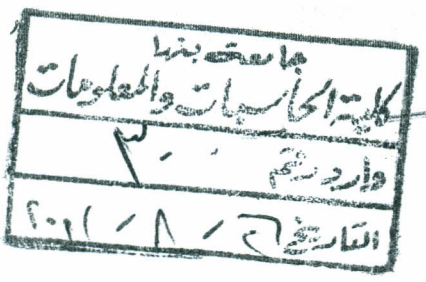 جامعة بنها
كلية الحاسبات والمعلومات
وارد رقم ٣٠٠
التاريخ ٢٠١١/٨/٢